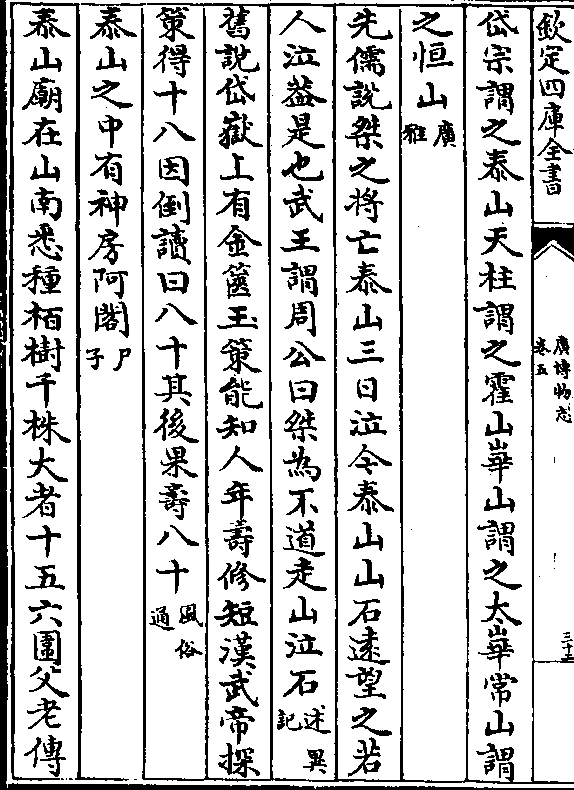 欽定四庫全書
廣博物志
卷五
岱宗謂之泰山天柱謂之霍山崋山謂之太崋常山謂
之恒山廣雅
先儒説桀之將亡泰山三日泣今泰山山石遠望之若
人泣葢是也武王謂周公曰桀為不道走山泣石述異記
舊説岱嶽上有金篋玉策能知人年壽修短漢武帝探
策得十八因倒讀曰八十其後果壽八十風俗通
泰山之中有神房阿閣尸子
泰山廟在山南悉種栢樹千株大者十五六圍父老傳